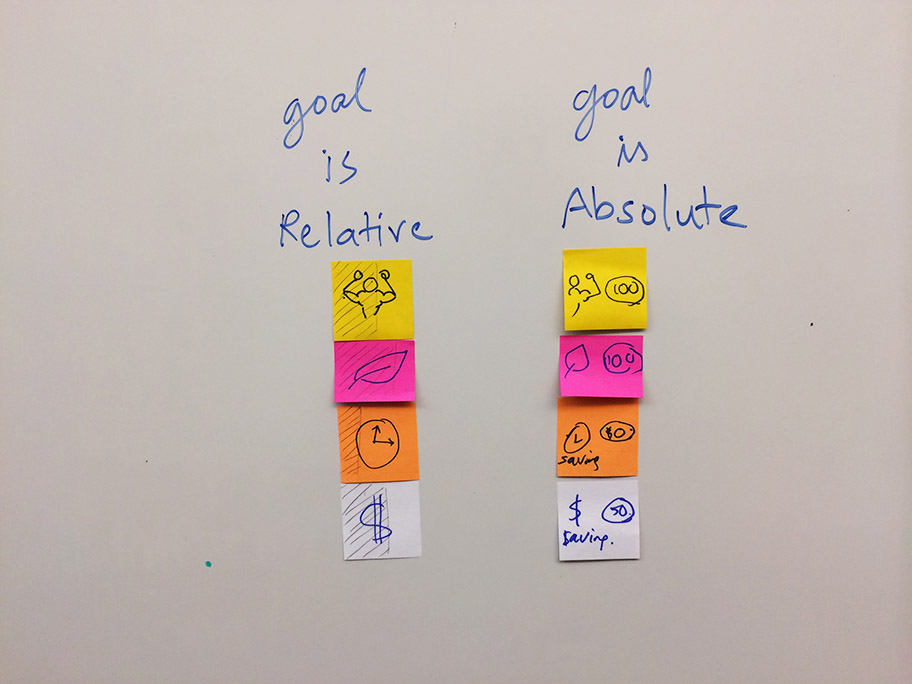 goal
is
Relative
$
goal
is
Absolute
100
100
saving
$ 50
saving.